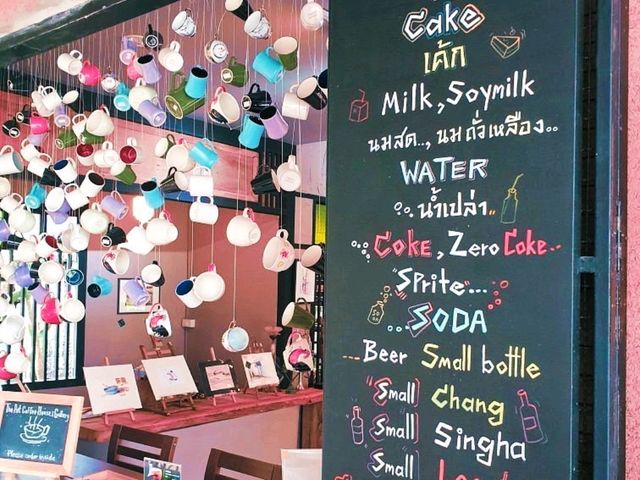 Cake
เค้ก
Milk, Soymilk
นมสด.., นมถั่วเหลือง..
WATER
น้ำเปล่า..
Coke, Zero Coke..
Sprite...
...SODA
...Beer Small bottle
"Small Chang
"Small Singha
"Small
The Art Coffee House & Gallery
Please order inside